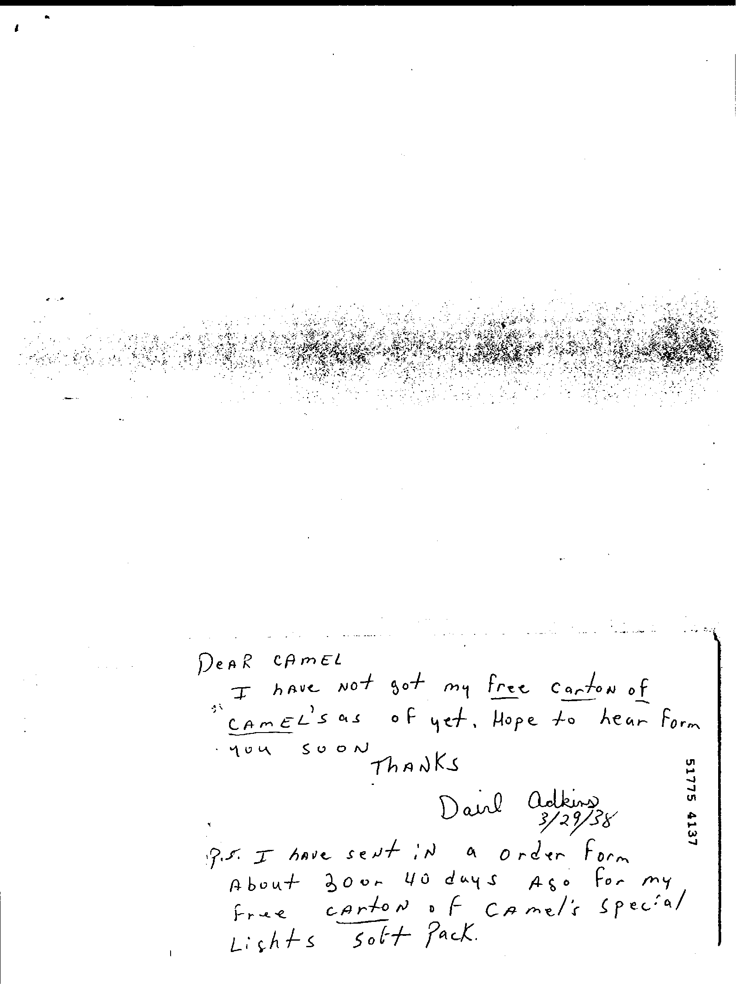 DEAR CAMEL
I have NOT got my free carton of
CAMEL's as of yet. Hope to hear form
you soon
THANKS
Adkins
3/29/38
P.S. I have sent in a order form
About 30 or 40 days Ago for my
free carton of Camel's special
Lights soft Pack.
51775 4137